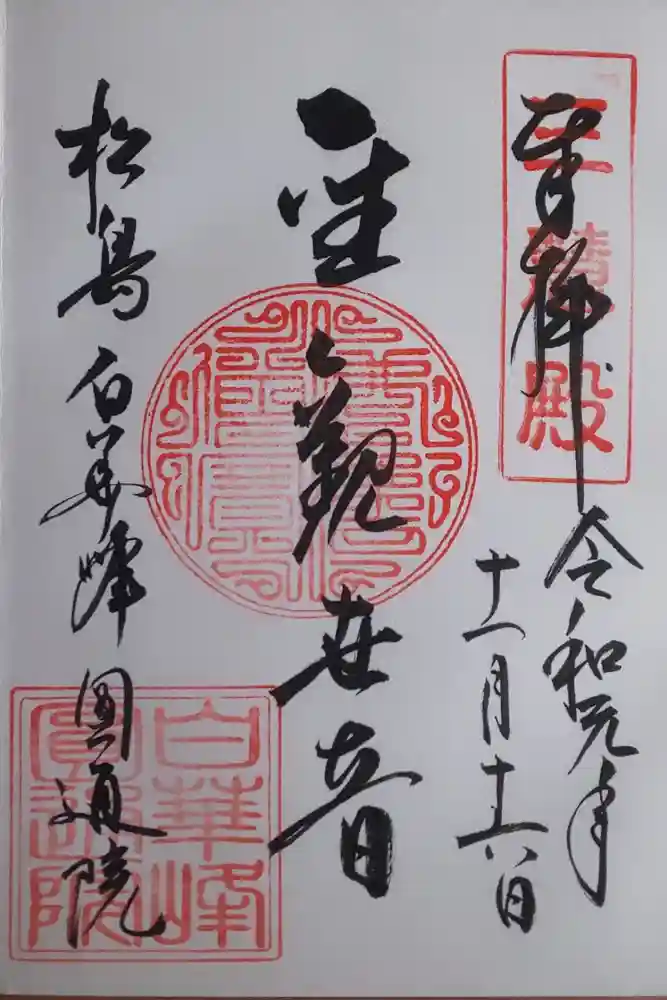 奉拝 令和元年
十一月十六日
三慧殿
聖觀世音
松島 白華峰 圓通院
白華峰
圓通院